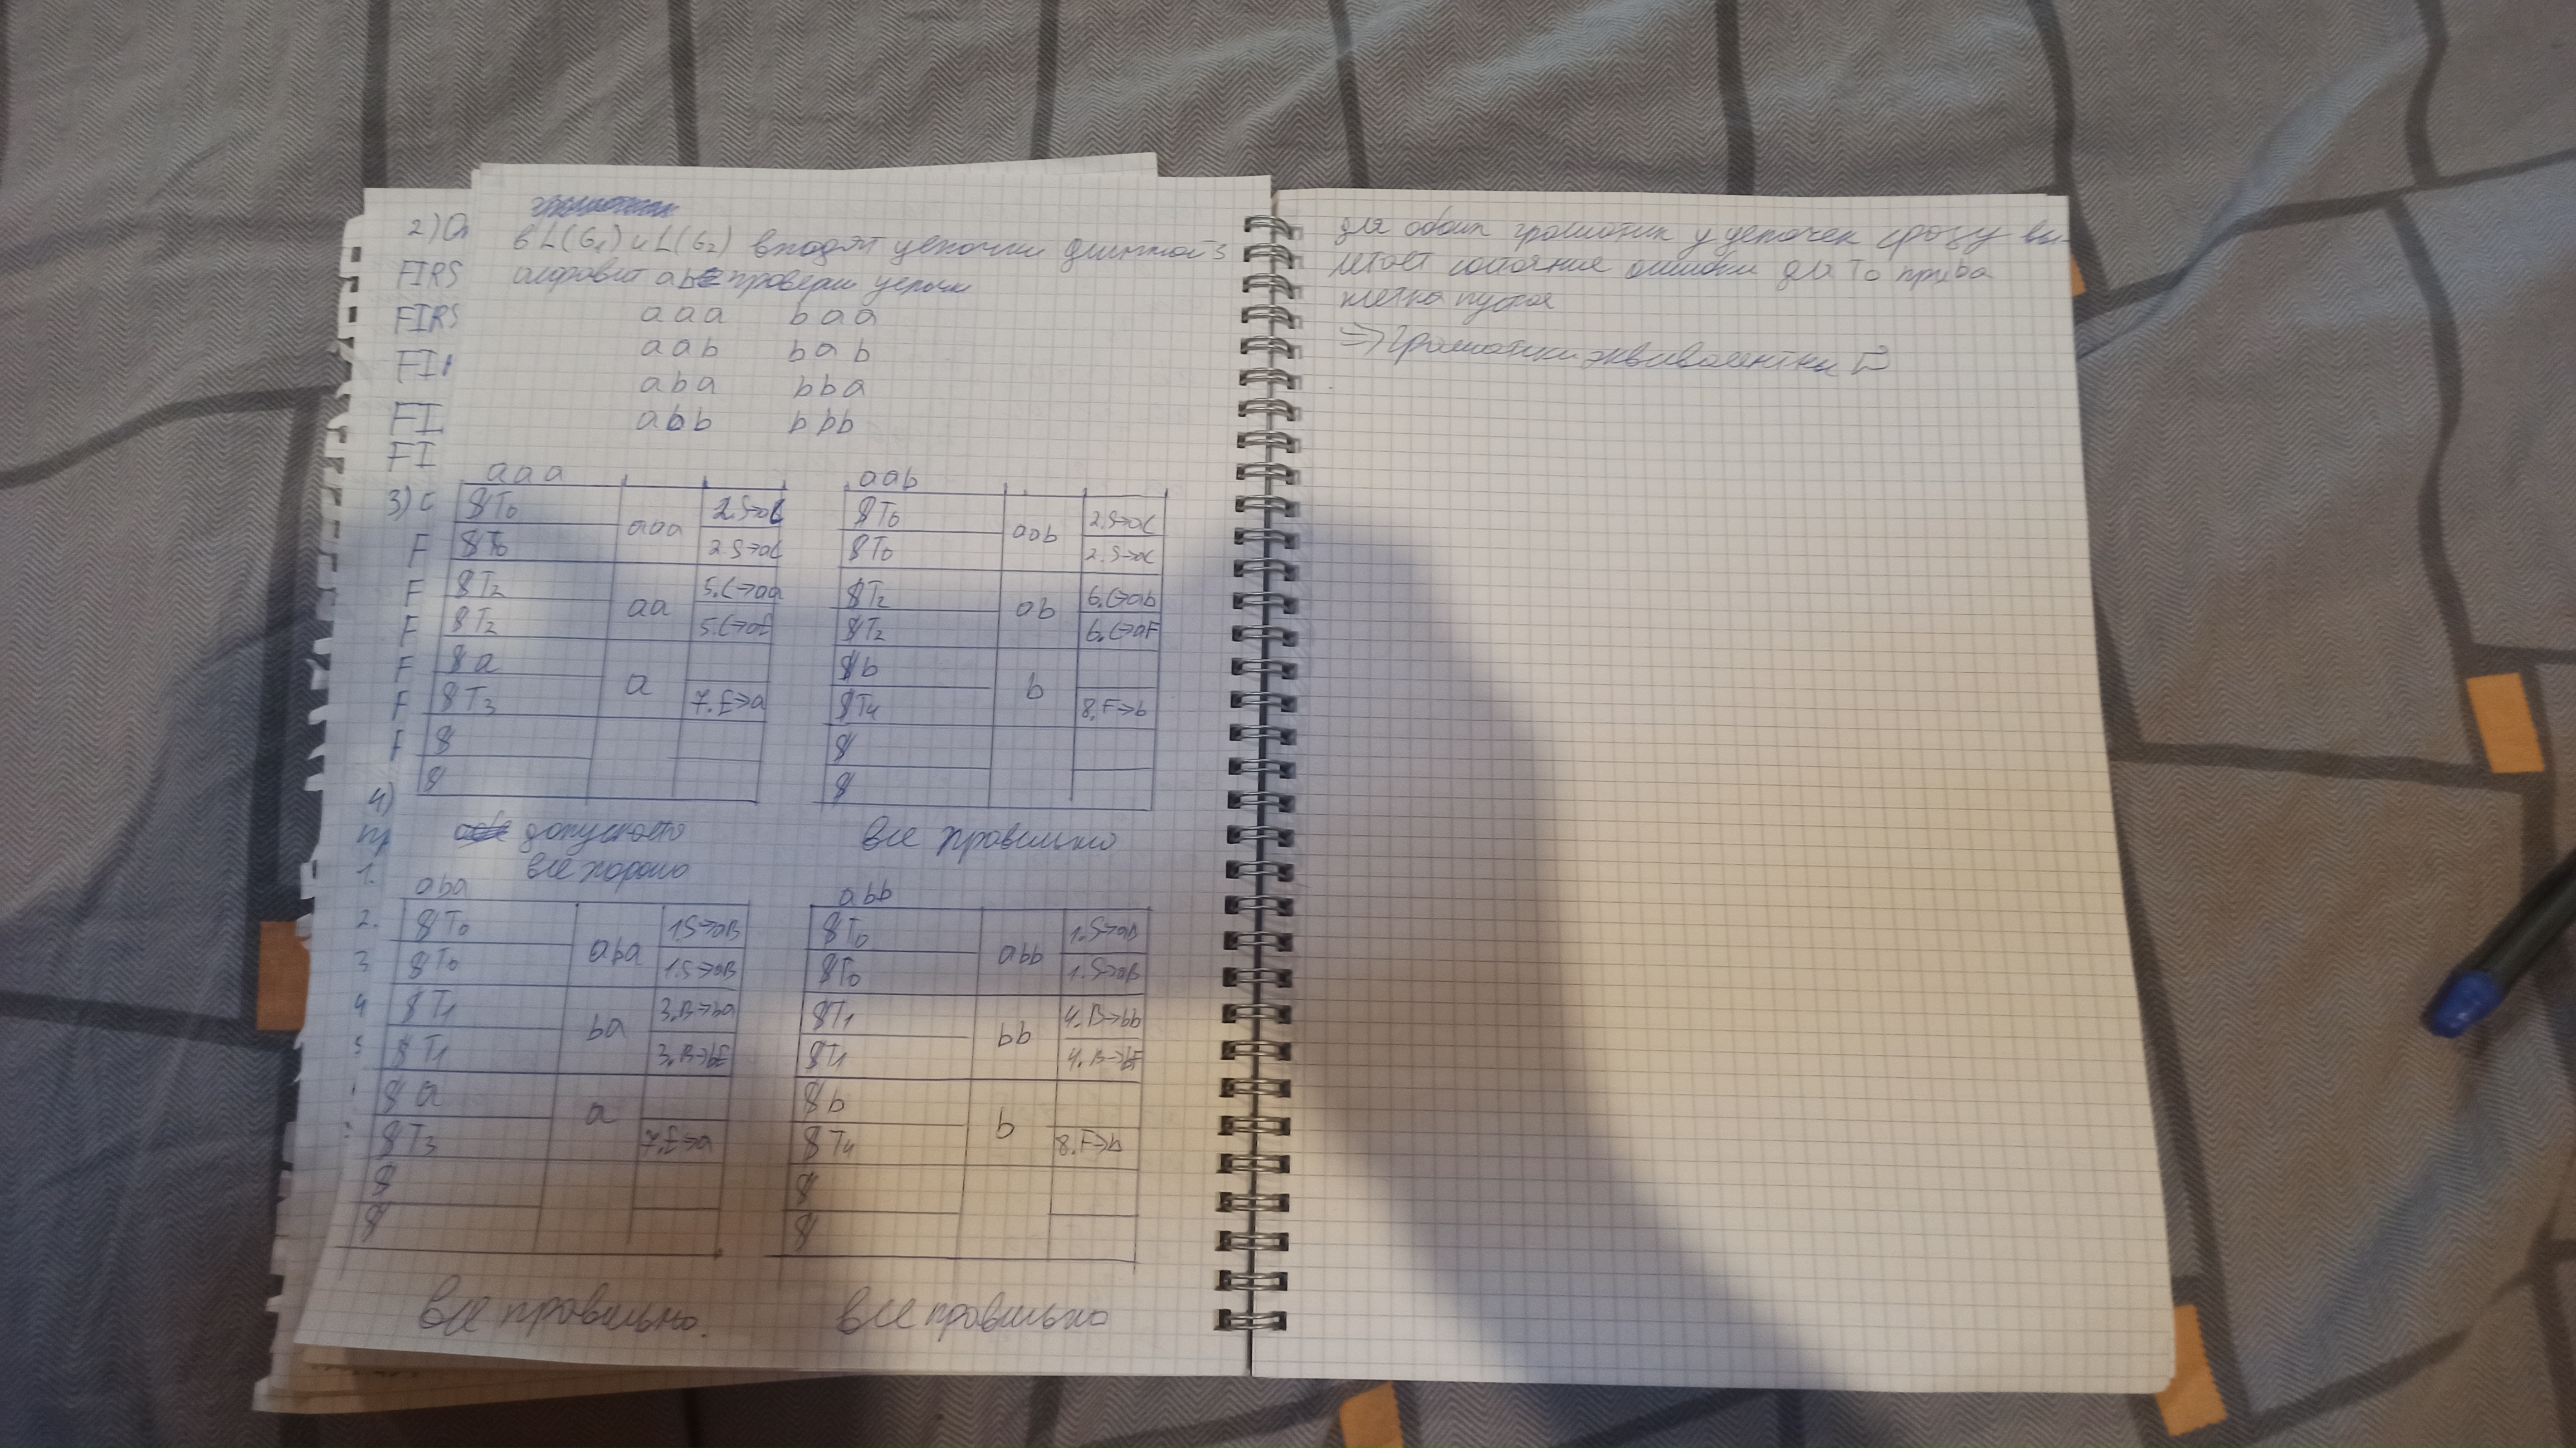 2) Оп
FIRS
FIRS
FI
FI
FI
3) с
F
F
F
F
F
F
4)
пр
1.
2.
3
4
5
в L(G₁) и L(G₂) входят цепочки длинной 3
алфавит ab провери цепочки
aaa baa
aab bab
aba bba
abb bbb
aaa
$T₀ aaa 2.S→aC
$T₀ 2.S→aC
$T₂ aa 5.C→aa
$T₂ 5.C→aE
$a a
$T₃ 7.E→a
$
$
допускается
все хорошо
aab
$T₀ aab 2.S→aC
$T₀ 2.S→aC
$T₂ ab 6.C→ab
$T₂ 6.C→aF
$b b
$T₄ 8.F→b
$
$
все правильно
aba
$T₀ aba 1.S→aB
$T₀ 1.S→aB
$T₁ ba 3.B→ba
$T₁ 3.B→bE
$a a
$T₃ 7.E→a
$
$
все правильно.
abb
$T₀ abb 1.S→aB
$T₀ 1.S→aB
$T₁ bb 4.B→bb
$T₁ 4.B→bF
$b b
$T₄ 8.F→b
$
$
все правильно
для обоих грамматик у цепочек сразу вы-
летает состояние ошибки для T₀ при b
клетка пустая
⇒ Грамматики эквивалентны